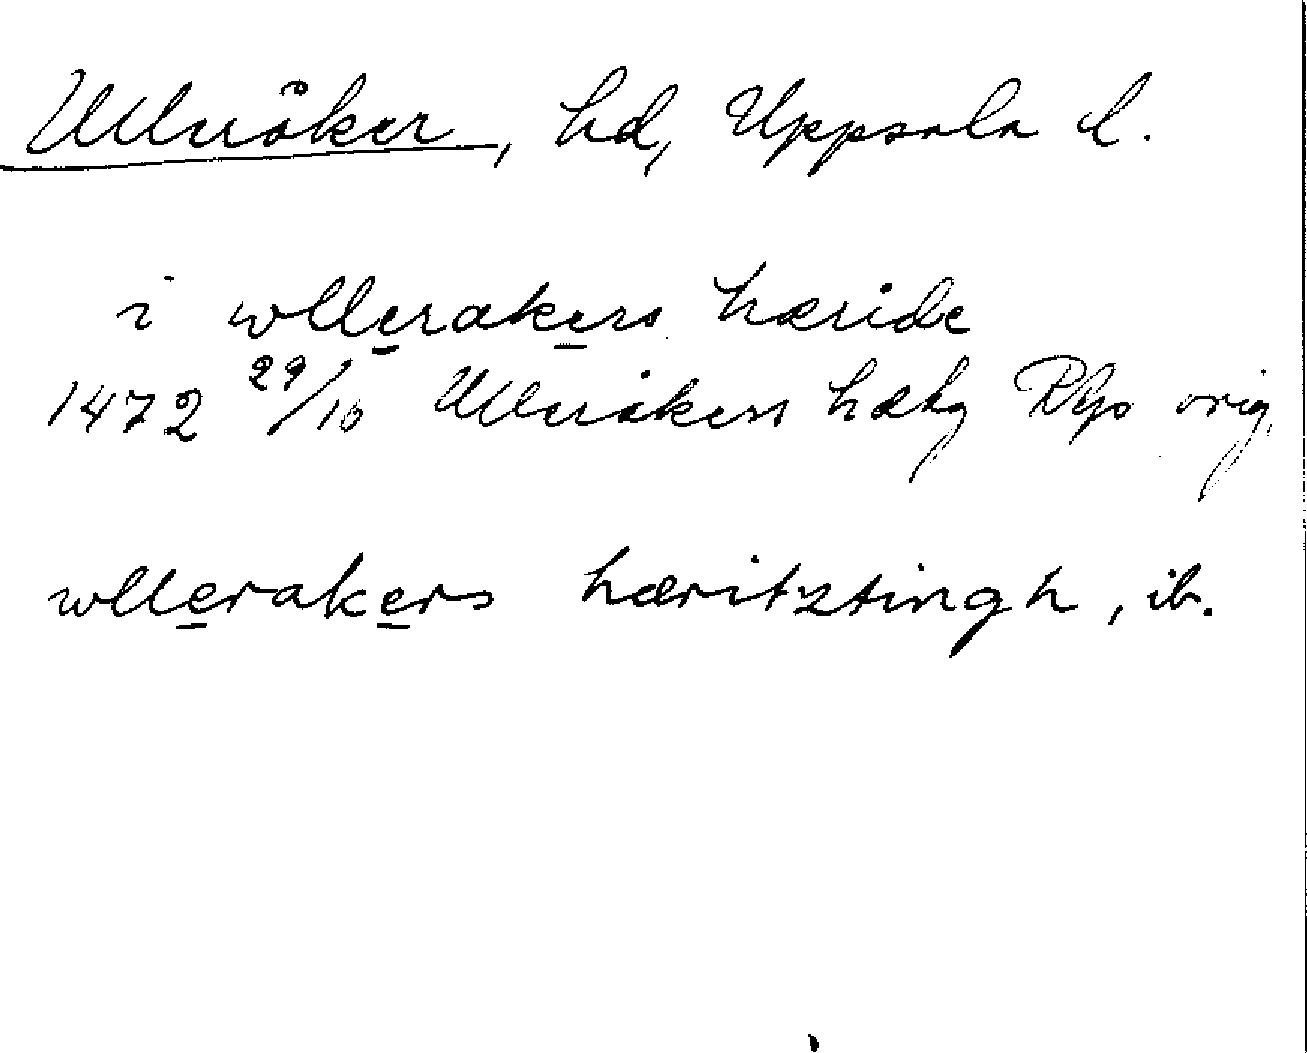 Ulleråker, hd, Uppsala l.
i wllerakers hæride
1472 29/10 Ulleråkers hætg RAp orig.
wllerakers hæritztingh, ib.